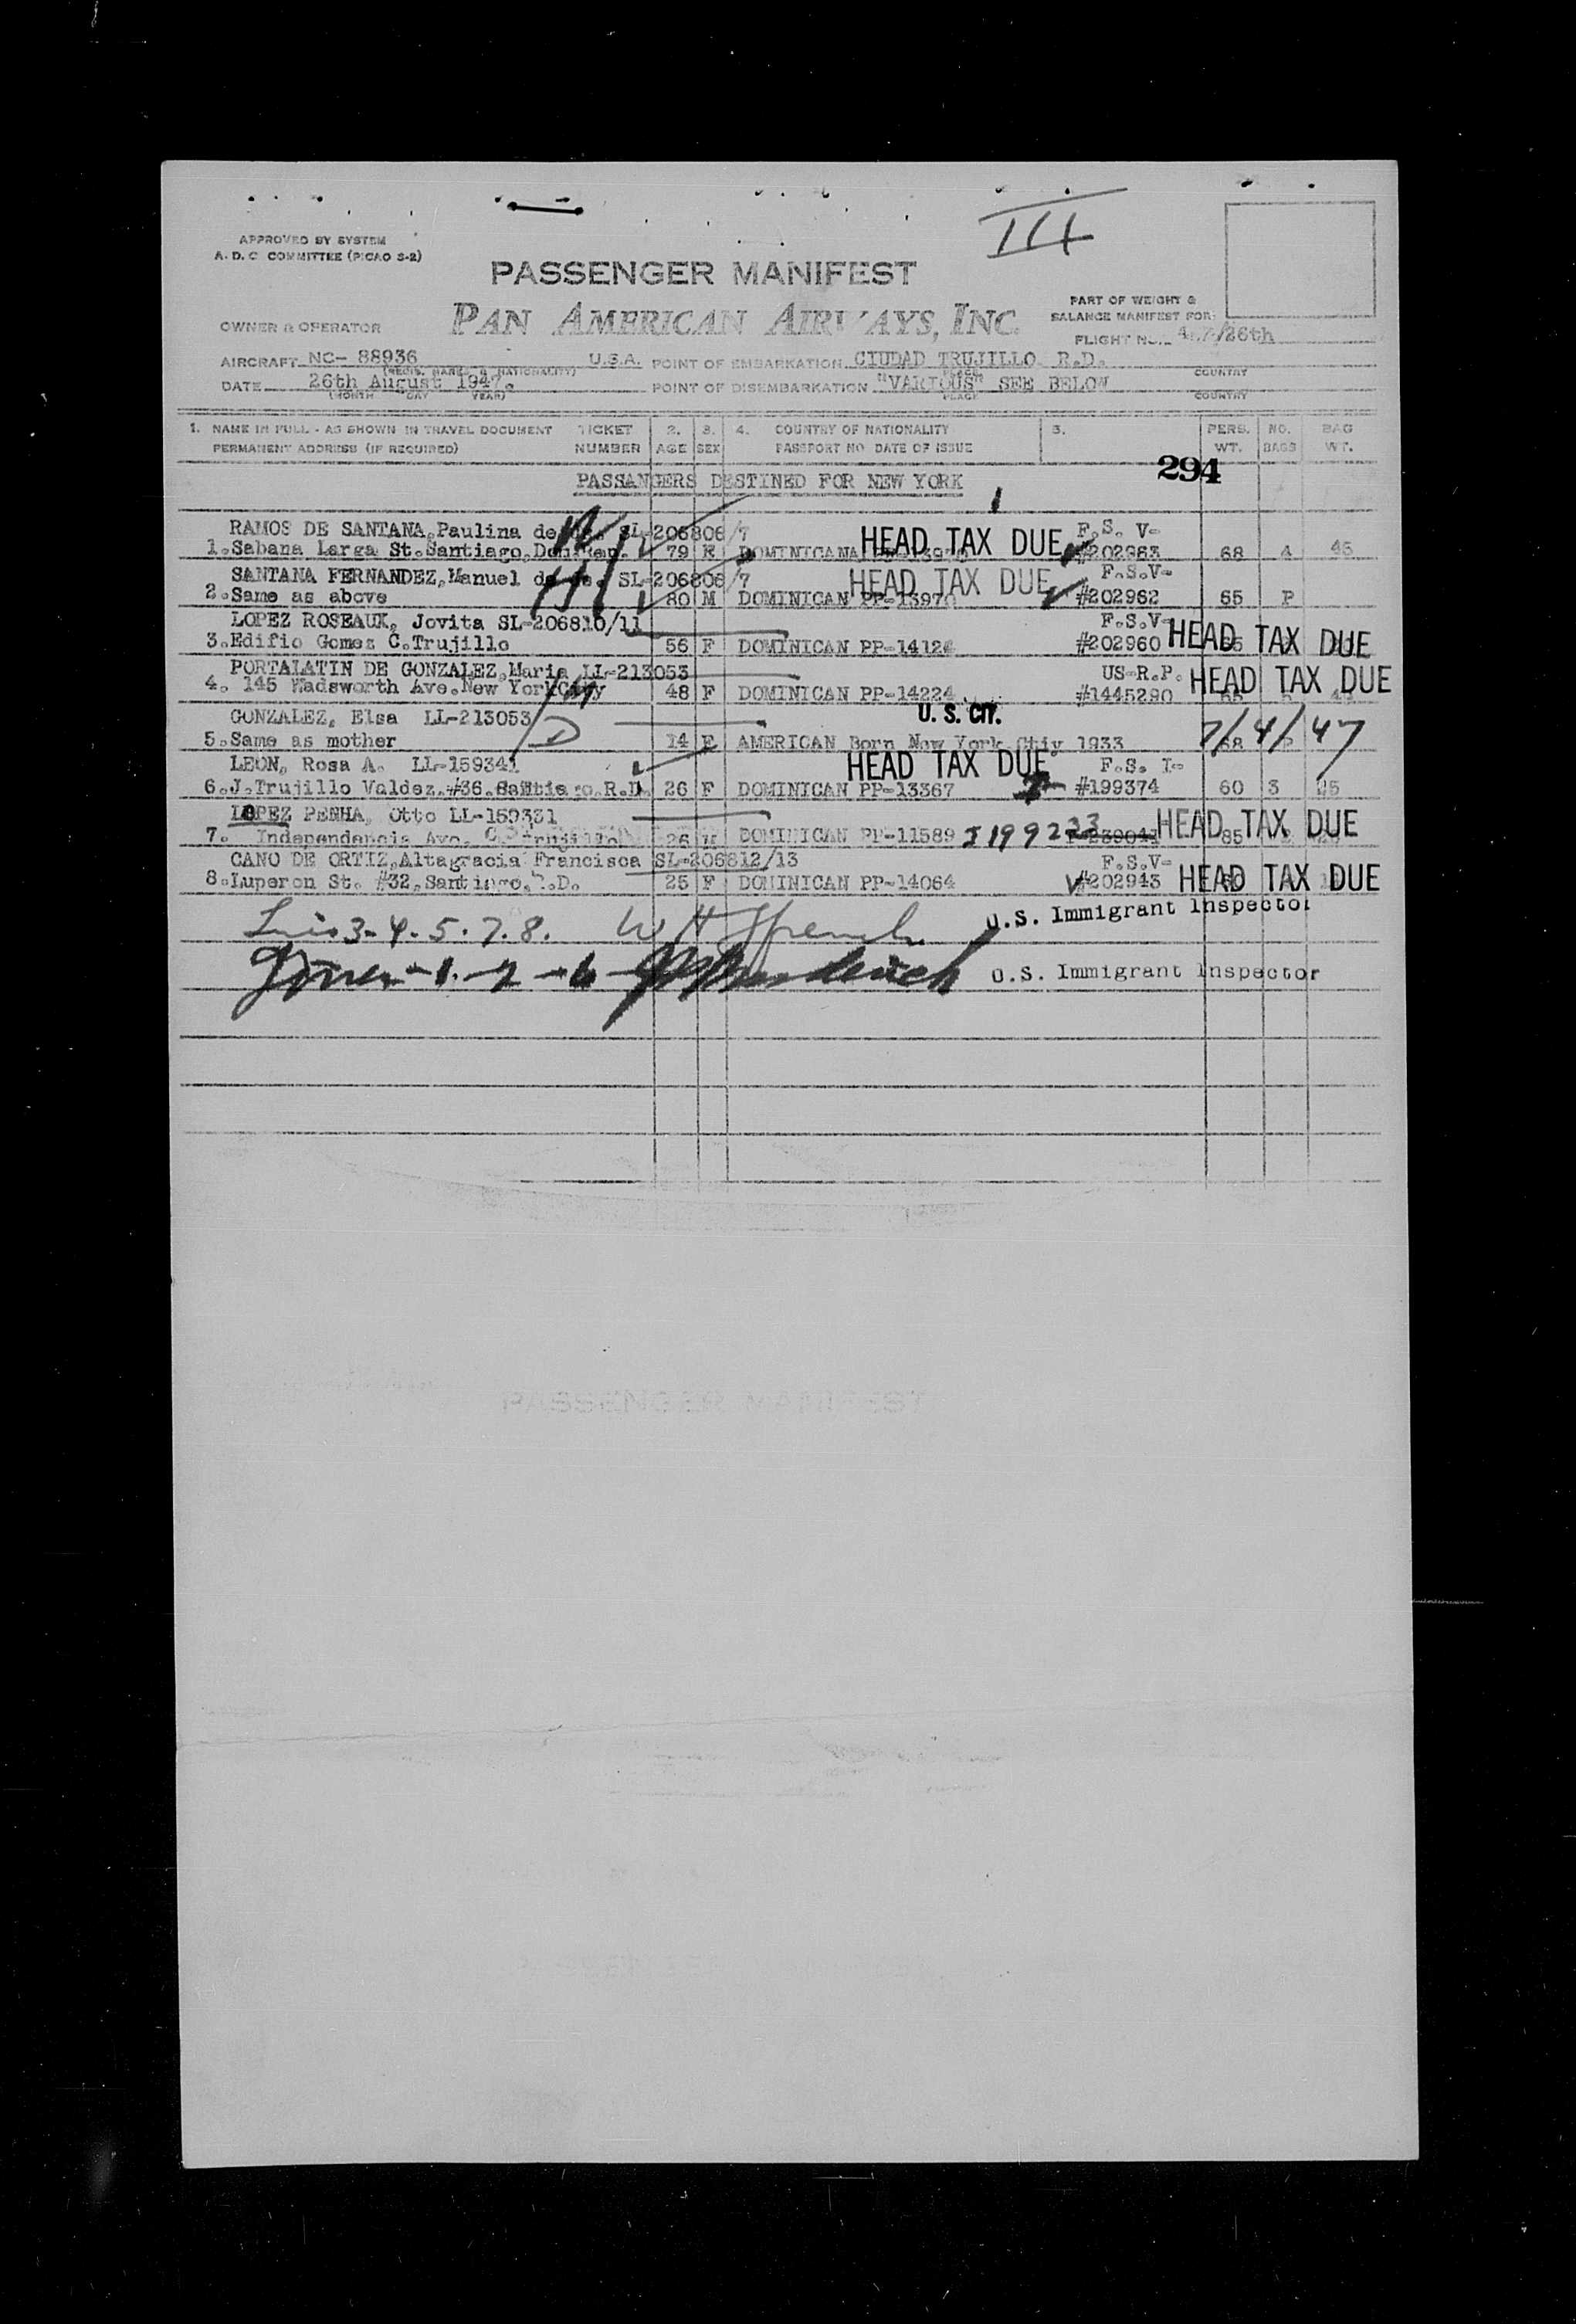 III
APPROVED BY SYSTEM
A. D. C COMMITTEE (PICAO S-2)
PASSENGER MANIFEST
PART OF WEIGHT &
BALANCE MANIFEST FOR:
OWNER & OPERATOR PAN AMERICAN AIRWAYS, INC.
FLIGHT NO. /26th
AIRCRAFT NC- 88936 U.S.A. POINT OF EMBARKATION CIUDAD TRUJILLO R.D.
(REGIS. MARKS & NATIONALITY) PLACE COUNTRY
DATE 26th August 1947. POINT OF DISEMBARKATION "VARIOUS" SEE BELOW
(MONTH DAY YEAR) PLACE COUNTRY
1. NAME IN FULL - AS SHOWN IN TRAVEL DOCUMENT TICKET 2. 3. 4. COUNTRY OF NATIONALITY 5. PERS. NO. BAG
PERMANENT ADDRESS (IF REQUIRED) NUMBER AGE SEX PASSPORT NO DATE OF ISSUE WT. BAGS WT.
294
PASSANGERS DESTINED FOR NEW YORK
RAMOS DE SANTANA, Paulina de SL-206806/7 HEAD TAX DUE F.S. V-
1. Sabana Larga St. Santiago, Dom. Rep. 79 F DOMINICANA #202963 68 4 45
SANTANA FERNANDEZ, Manuel de SL-206806/7 HEAD TAX DUE F.S.V-
2. Same as above 80 M DOMINICAN PP-13970 #202962 65 P
LOPEZ ROSEAUX, Jovita SL-206810/11 F.S.V-
3. Edifio Gomez C.Trujillo 56 F DOMINICAN PP-1412 #202960 HEAD TAX DUE
PORTALATIN DE GONZALEZ, Maria LL-213053 US-R.P. HEAD TAX DUE
4. 145 Wadsworth Ave. New York City 48 F DOMINICAN PP-14224 #1445290
GONZALEZ, Elsa LL-213053 / D U. S. CIT. 7/4/47
5. Same as mother 14 F AMERICAN Born New York Chiy 1933 68 P
LEON, Rosa A. LL-159341 HEAD TAX DUE F.S. I-
6. J. Trujillo Valdez. #36. Santiago. R.D. 26 F DOMINICAN PP-13367 #199374 60 3
LOPEZ PENHA, Otto LL-159331
7. Independencia Ave. Trujillo 26 M DOMINICAN PP-11589 I 199223 HEAD TAX DUE 85
CANO DE ORTIZ, Altagracia Francisca SL-206812/13 F.S.V-
8. Luperon St. #32, Santiago, R.D. 25 F DOMINICAN PP-14064 #202943 HEAD TAX DUE
3-4-5-7-8. U.S. Immigrant Inspector
1-2-6 U.S. Immigrant Inspector